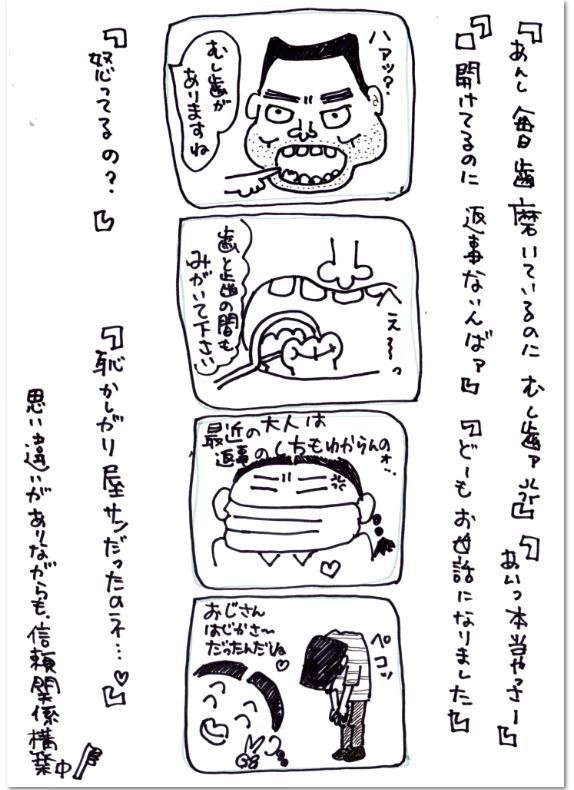 『あんし 毎日 歯 磨いているのに むし歯ァ』
『あいつ本当やっさー』
『口開けてるのに 返事ないんばァ』
『どーもお世話になりました』
ハァッ?
むし歯が
ありますね
へぇ〜っ
歯と歯の間も
みがいて下さい
最近の大人は
返事のしちもわからんのォ…
ペコッ
おじさん
はじかさ〜
だったんだね♡
『怒ってるの?』
『恥かしがり屋サンだったのネ…♡』
思い違いがありながらも、信頼関係構築中